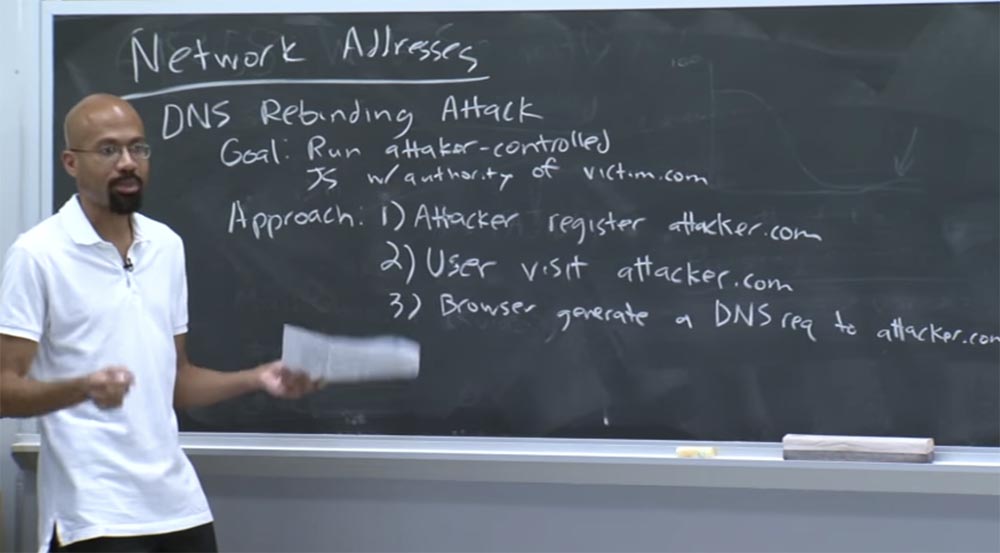 Network Addresses
DNS Rebinding Attack
Goal: Run attaker-controlled
JS w/ authority of victim.com
Approach: 1) Attacker register attacker.com
2) User visit attacker.com
3) Browser generate a DNS req to attacker.com
100